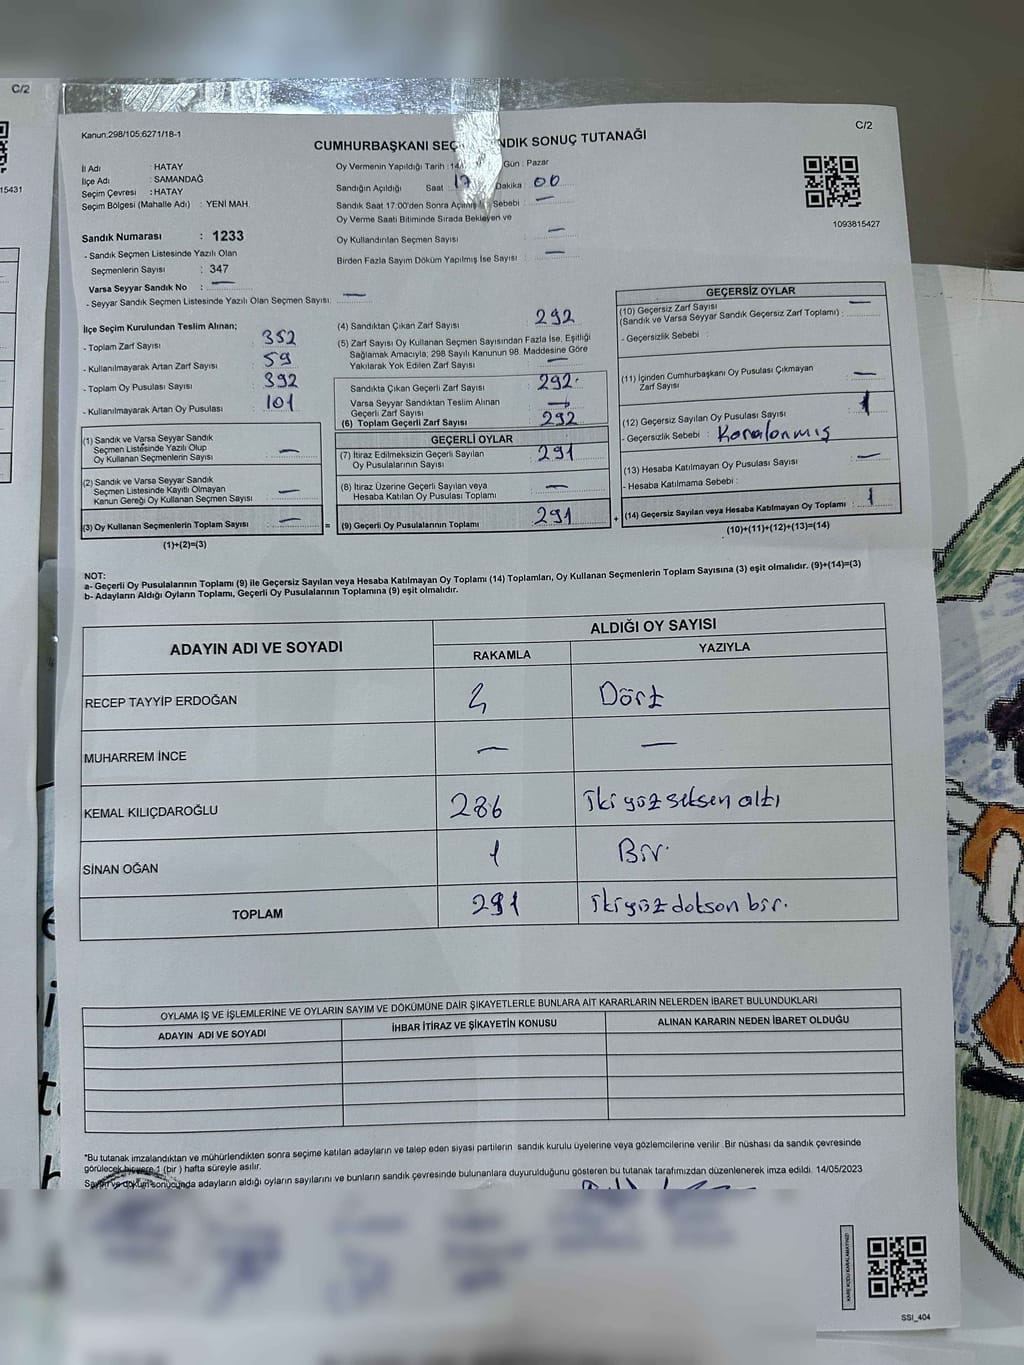 C/2
15431
Kanun.298/105:6271/18-1
C/2
CUMHURBAŞKANI SEÇ NDIK SONUÇ TUTANAĞI
İl Adı : HATAY
İlçe Adı : SAMANDAĞ
Seçim Çevresi : HATAY
Seçim Bölgesi (Mahalle Adı) : YENİ MAH.
Oy Vermenin Yapıldığı Tarih : 14 Gün : Pazar
Sandığın Açıldığı Saat 17 Dakika : 00
Sandık Saat 17:00'den Sonra Açılmış Sebebi : —
Oy Verme Saati Bitiminde Sırada Bekleyen ve
Oy Kullandırılan Seçmen Sayısı : —
Birden Fazla Sayım Döküm Yapılmış İse Sayısı : —
1093815427
Sandık Numarası : 1233
- Sandık Seçmen Listesinde Yazılı Olan
Seçmenlerin Sayısı : 347
Varsa Seyyar Sandık No : —
- Seyyar Sandık Seçmen Listesinde Yazılı Olan Seçmen Sayısı: —
İlçe Seçim Kurulundan Teslim Alınan;
- Toplam Zarf Sayısı : 352
- Kullanılmayarak Artan Zarf Sayısı : 59
- Toplam Oy Pusulası Sayısı : 392
- Kullanılmayarak Artan Oy Pusulası : 101
(1) Sandık ve Varsa Seyyar Sandık
Seçmen Listesinde Yazılı Olup
Oy Kullanan Seçmenlerin Sayısı : —
(2) Sandık ve Varsa Seyyar Sandık
Seçmen Listesinde Kayıtlı Olmayan
Kanun Gereği Oy Kullanan Seçmen Sayısı : —
(3) Oy Kullanan Seçmenlerin Toplam Sayısı : — =
(1)+(2)=(3)
(4) Sandıktan Çıkan Zarf Sayısı : 292
(5) Zarf Sayısı Oy Kullanan Seçmen Sayısından Fazla İse, Eşitliği
Sağlamak Amacıyla, 298 Sayılı Kanunun 98. Maddesine Göre
Yakılarak Yok Edilen Zarf Sayısı : —
Sandıkta Çıkan Geçerli Zarf Sayısı : 292
Varsa Seyyar Sandıktan Teslim Alınan
Geçerli Zarf Sayısı : —
(6) Toplam Geçerli Zarf Sayısı : 292
GEÇERLİ OYLAR
(7) İtiraz Edilmeksizin Geçerli Sayılan
Oy Pusulalarının Sayısı : 291
(8) İtiraz Üzerine Geçerli Sayılan veya
Hesaba Katılan Oy Pusulası Toplamı : —
(9) Geçerli Oy Pusulalarının Toplamı : 291 +
GEÇERSİZ OYLAR
(10) Geçersiz Zarf Sayısı
(Sandık ve Varsa Seyyar Sandık Geçersiz Zarf Toplamı) : —
- Geçersizlik Sebebi :
(11) İçinden Cumhurbaşkanı Oy Pusulası Çıkmayan
Zarf Sayısı : —
(12) Geçersiz Sayılan Oy Pusulası Sayısı : 1
- Geçersizlik Sebebi : Karalanmış
(13) Hesaba Katılmayan Oy Pusulası Sayısı : —
- Hesaba Katılmama Sebebi :
(14) Geçersiz Sayılan veya Hesaba Katılmayan Oy Toplamı : 1
(10)+(11)+(12)+(13)=(14)
NOT:
a- Geçerli Oy Pusulalarının Toplamı (9) ile Geçersiz Sayılan veya Hesaba Katılmayan Oy Toplamı (14) Toplamları, Oy Kullanan Seçmenlerin Toplam Sayısına (3) eşit olmalıdır. (9)+(14)=(3)
b- Adayların Aldığı Oyların Toplamı, Geçerli Oy Pusulalarının Toplamına (9) eşit olmalıdır.
ADAYIN ADI VE SOYADI
ALDIĞI OY SAYISI
RAKAMLA YAZIYLA
RECEP TAYYİP ERDOĞAN 4 Dört
MUHARREM İNCE — —
KEMAL KILIÇDAROĞLU 286 iki yüz seksen altı
SİNAN OĞAN 1 Bir
TOPLAM 291 iki yüz doksan bir.
OYLAMA İŞ VE İŞLEMLERİNE VE OYLARIN SAYIM VE DÖKÜMÜNE DAİR ŞİKAYETLERLE BUNLARA AİT KARARLARIN NELERDEN İBARET BULUNDUKLARI
ADAYIN ADI VE SOYADI İHBAR İTİRAZ VE ŞİKAYETİN KONUSU ALINAN KARARIN NEDEN İBARET OLDUĞU
*Bu tutanak imzalandıktan ve mühürlendikten sonra seçime katılan adayların ve talep eden siyasi partilerin sandık kurulu üyelerine veya gözlemcilerine verilir. Bir nüshası da sandık çevresinde
görülecek bir yere 1 (bir) hafta süreyle asılır.
Sayım ve döküm sonucunda adayların aldığı oyların sayılarını ve bunların sandık çevresinde bulunanlara duyurulduğunu gösteren bu tutanak tarafımızdan düzenlenerek imza edildi. 14/05/2023
KARE KODU KARALAMAYINIZ!
SSI_404